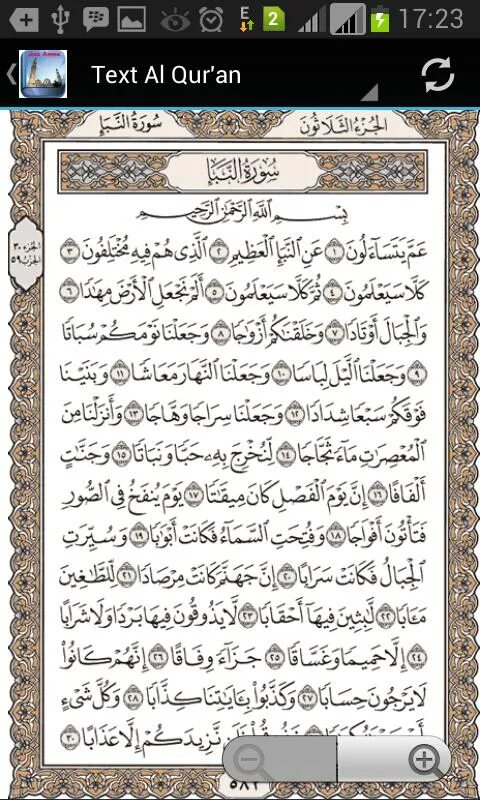 17:23
Text Al Qur'an
سُورَةُ النَّبَإِ
الجُزْءُ الثَّلَاثُونَ
سُورَةُ النَّبَإِ
بِسْمِ اللَّهِ الرَّحْمَٰنِ الرَّحِيمِ
الجزء ٣٠
الحزب ٥٩
عَمَّ يَتَسَاءَلُونَ ١ عَنِ النَّبَإِ الْعَظِيمِ ٢ الَّذِي هُمْ فِيهِ مُخْتَلِفُونَ ٣
كَلَّا سَيَعْلَمُونَ ٤ ثُمَّ كَلَّا سَيَعْلَمُونَ ٥ أَلَمْ نَجْعَلِ الْأَرْضَ مِهَٰدًا ٦
وَالْجِبَالَ أَوْتَادًا ٧ وَخَلَقْنَٰكُمْ أَزْوَٰجًا ٨ وَجَعَلْنَا نَوْمَكُمْ سُبَاتًا
٩ وَجَعَلْنَا الَّيْلَ لِبَاسًا ١٠ وَجَعَلْنَا النَّهَارَ مَعَاشًا ١١ وَبَنَيْنَا
فَوْقَكُمْ سَبْعًا شِدَادًا ١٢ وَجَعَلْنَا سِرَاجًا وَهَّاجًا ١٣ وَأَنزَلْنَا مِنَ
الْمُعْصِرَٰتِ مَاءً ثَجَّاجًا ١٤ لِّنُخْرِجَ بِهِۦ حَبًّا وَنَبَاتًا ١٥ وَجَنَّٰتٍ
أَلْفَافًا ١٦ إِنَّ يَوْمَ الْفَصْلِ كَانَ مِيقَٰتًا ١٧ يَوْمَ يُنفَخُ فِي الصُّورِ
فَتَأْتُونَ أَفْوَاجًا ١٨ وَفُتِحَتِ السَّمَاءُ فَكَانَتْ أَبْوَٰبًا ١٩ وَسُيِّرَتِ
الْجِبَالُ فَكَانَتْ سَرَابًا ٢٠ إِنَّ جَهَنَّمَ كَانَتْ مِرْصَادًا ٢١ لِّلطَّٰغِينَ
مَـَٔابًا ٢٢ لَّٰبِثِينَ فِيهَا أَحْقَابًا ٢٣ لَّا يَذُوقُونَ فِيهَا بَرْدًا وَلَا شَرَابًا
٢٤ إِلَّا حَمِيمًا وَغَسَّاقًا ٢٥ جَزَاءً وِفَاقًا ٢٦ إِنَّهُمْ كَانُوا
لَا يَرْجُونَ حِسَابًا ٢٧ وَكَذَّبُوا بِـَٔايَٰتِنَا كِذَّابًا ٢٨ وَكُلَّ شَيْءٍ
نَّزِيدَكُمْ إِلَّا عَذَابًا ٣٠
٥٨٢